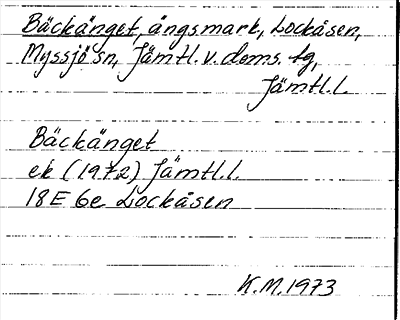 Bäckänget, ängsmark, Lockåsen,
Myssjö sn, Jämtl. v. doms. tg,
Jämtl.l.
Bäckänget
ek (1972) Jämtl.l.
18E 6e Lockåsen
K.M. 1973